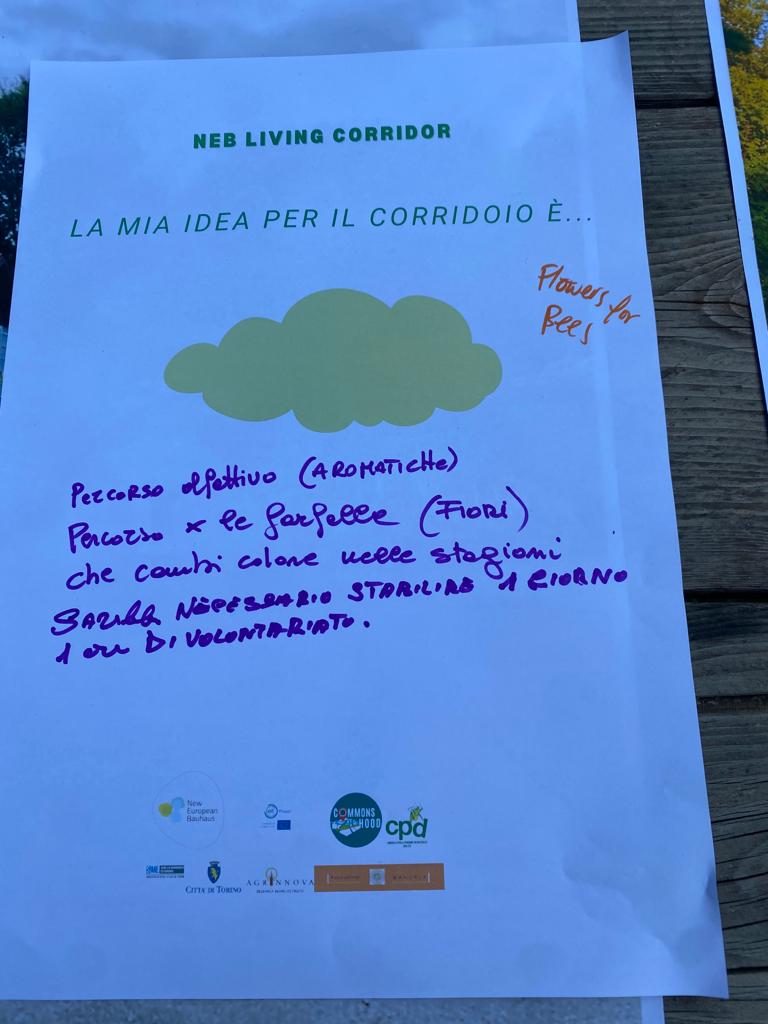 NEB LIVING CORRIDOR
LA MIA IDEA PER IL CORRIDOIO È...
Flowers for
Bees
PERCORSO olfattivo (AROMATICHE)
Percorso x le farfalle (FIORI)
che cambi colore nelle stagioni
SAREBBE NECESSARIO STABILIRE 1 GIORNO
1 ora DI VOLONTARIATO.
New
European
Bauhaus
COMMONS
HOOD
cpd
CITTÀ DI TORINO
AGRINNOVA